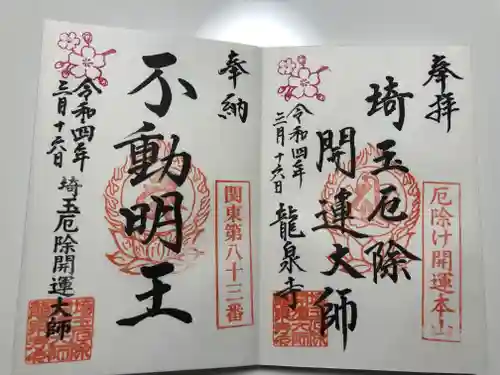 奉拝
厄除け開運本山
埼玉厄除
開運大師
令和四年
三月十六日
龍泉寺
奉納
関東第八十三番
不動明王
令和四年
三月十六日
埼玉厄除開運大師